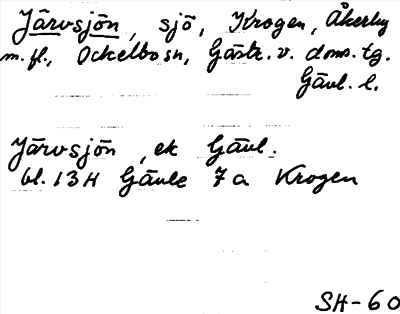 Järvsjön, sjö, Krogen, Åkerby
m.fl., Ockelbo sn, Gästr. v. doms. tg.
Gävl. l.
Järvsjön, ek Gävl.
bl. 13H Gävle 7a Krogen
SH-60